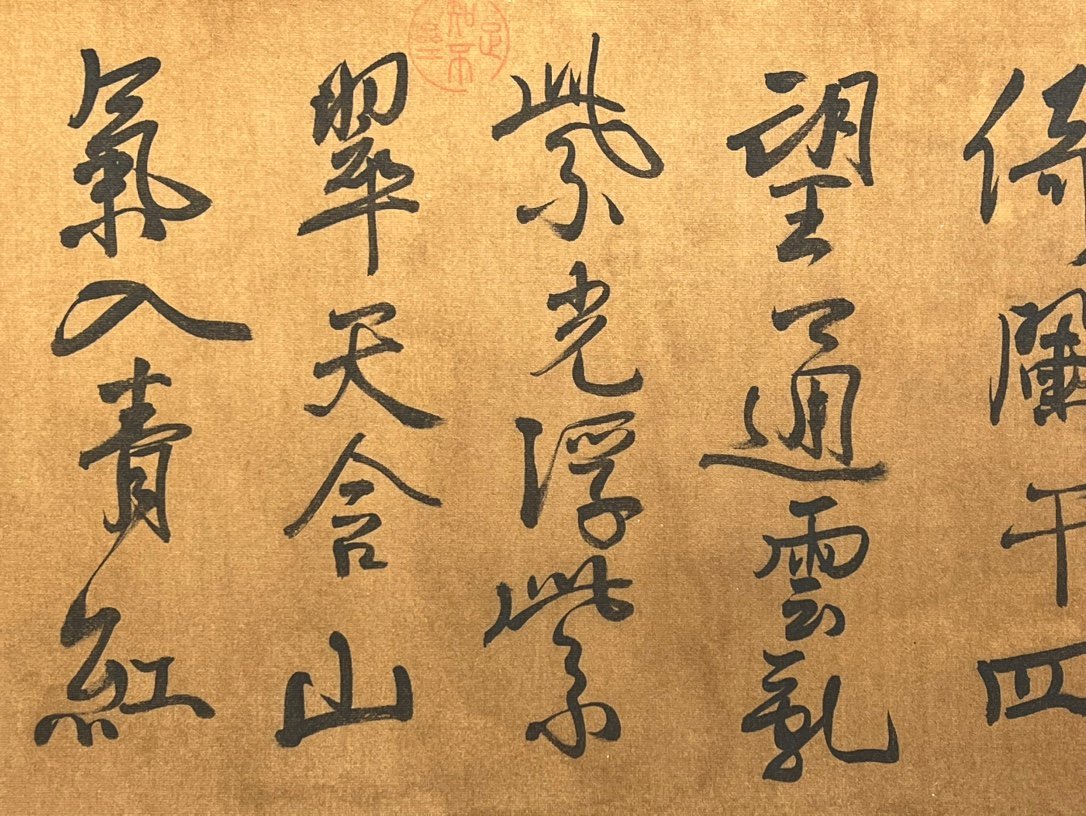 倚闌干四
望通雲
紫光浮紫
翠天含山
氣入青紅